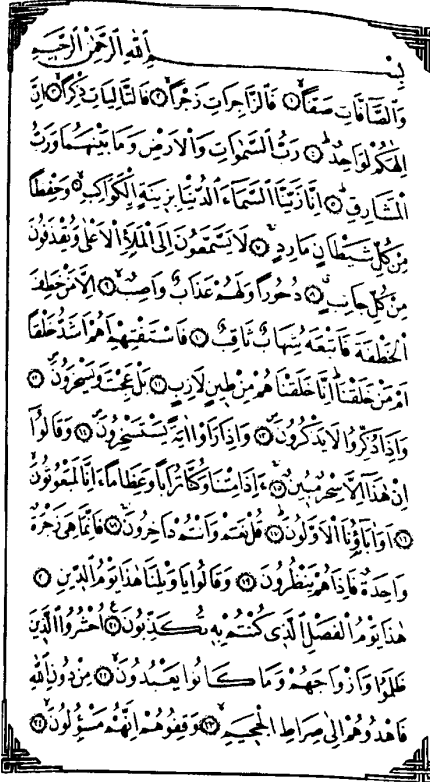 بِسْمِ اللّٰهِ الرَّحْمٰنِ الرَّحِيمِ
وَالصَّافَّاتِ صَفًّاۙ ﴿١﴾ فَالزَّاجِرَاتِ زَجْرًاۙ ﴿٢﴾ فَالتَّالِيَاتِ ذِكْرًاۙ ﴿٣﴾ اِنَّ
اِلٰهَكُمْ لَوَاحِدٌۜ ﴿٤﴾ رَبُّ السَّمٰوَاتِ وَالْاَرْضِ وَمَا بَيْنَهُمَا وَرَبُّ
الْمَشَارِقِۜ ﴿٥﴾ اِنَّا زَيَّنَّا السَّمَٓاءَ الدُّنْيَا بِزِينَةٍۨ الْكَوَاكِبِۙ ﴿٦﴾ وَحِفْظًا
مِنْ كُلِّ شَيْطَانٍ مَارِدٍۚ ﴿٧﴾ لَا يَسَّمَّعُونَ اِلَى الْمَلَأِ الْاَعْلٰى وَيُقْذَفُونَ
مِنْ كُلِّ جَانِبٍۗ ﴿٨﴾ دُحُورًا وَلَهُمْ عَذَابٌ وَاصِبٌۙ ﴿٩﴾ اِلَّا مَنْ خَطِفَ
الْخَطْفَةَ فَاَتْبَعَهُ شِهَابٌ ثَاقِبٌ ﴿١٠﴾ فَاسْتَفْتِهِمْ اَهُمْ اَشَدُّ خَلْقًا
اَمْ مَنْ خَلَقْنَاۜ اِنَّا خَلَقْنَاهُمْ مِنْ طِينٍ لَازِبٍ ﴿١١﴾ بَلْ عَجِبْتَ وَيَسْخَرُونَۖ ﴿١٢﴾
وَاِذَا ذُكِّرُوا لَا يَذْكُرُونَۖ ﴿١٣﴾ وَاِذَا رَاَوْا اٰيَةً يَسْتَسْخِرُونَۖ ﴿١٤﴾ وَقَالُٓوا
اِنْ هٰذَٓا اِلَّا سِحْرٌ مُبِينٌۚ ﴿١٥﴾ ءَاِذَا مِتْنَا وَكُنَّا تُرَابًا وَعِظَامًا ءَاِنَّا لَمَبْعُوثُونَۙ
﴿١٦﴾ اَوَاٰبَٓاؤُ۬نَا الْاَوَّلُونَۜ ﴿١٧﴾ قُلْ نَعَمْ وَاَنْتُمْ دَاخِرُونَۚ ﴿١٨﴾ فَاِنَّمَا هِيَ زَجْرَةٌ
وَاحِدَةٌ فَاِذَا هُمْ يَنْظُرُونَ ﴿١٩﴾ وَقَالُوا يَا وَيْلَنَا هٰذَا يَوْمُ الدِّينِ ﴿٢٠﴾
هٰذَا يَوْمُ الْفَصْلِ الَّذِي كُنْتُمْ بِهِ تُكَذِّبُونَ۟ ﴿٢١﴾ اُحْشُرُوا الَّذِينَ
ظَلَمُوا وَاَزْوَاجَهُمْ وَمَا كَانُوا يَعْبُدُونَۙ ﴿٢٢﴾ مِنْ دُونِ اللّٰهِ
فَاهْدُوهُمْ اِلٰى صِرَاطِ الْجَحِيمِۙ ﴿٢٣﴾ وَقِفُوهُمْ اِنَّهُمْ مَسْؤُ۫لُونَۙ ﴿٢٤﴾